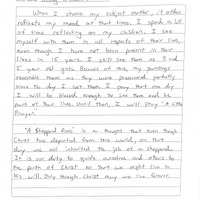 When I choose my subject matter, it often
reflects my mood at that time. I spend a lot
of time reflecting on my children. I see
myself with them in all aspects of their lives,
even though I have not been present in their
lives in 15 years. I still see them as 3 and
1 year old girls. Because of this, my paintings
resemble them as they were preserved perfectly
since the day I lost them. I pray that one day
I will be blessed enough to see them and be
part of their lives. Until then, I will pray "A Little
Prayer".
"A Sheppard Rose" is a thought that even though
Christ has departed from this world, on that
day we all inherited the job of a sheppard.
It is our duty to guide ourselves and others to
the path of Christ so that we might live in
his will. Only though Christ may we live forever.